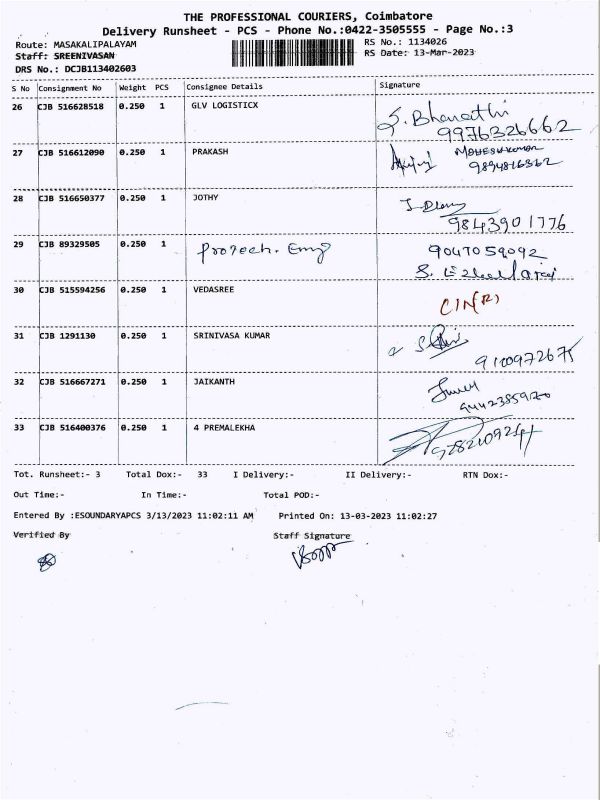 THE PROFESSIONAL COURIERS, Coimbatore
Delivery Runsheet - PCS - Phone No.:0422-3505555 - Page No.:3
Route: MASAKALIPALAYAM RS No.: 1134026
Staff: SREENIVASAN RS Date: 13-Mar-2023
DRS No.: DCJB113402603
S No Consignment No Weight PCS Consignee Details Signature
26 CJB 516628518 0.250 1 GLV LOGISTICX S. Bharathi
9976326662
27 CJB 516612090 0.250 1 PRAKASH MAHESH KUMAR
9894816362
28 CJB 516650377 0.250 1 JOTHY
9843901776
29 CJB 89329505 0.250 1 Protech. Emg 9047059092
30 CJB 515594256 0.250 1 VEDASREE CIN(R)
31 CJB 1291130 0.250 1 SRINIVASA KUMAR
9100972675
32 CJB 516667271 0.250 1 JAIKANTH
9442385920
33 CJB 516400376 0.250 1 4 PREMALEKHA
Tot. Runsheet:- 3 Total Dox:- 33 I Delivery:- II Delivery:- RTN Dox:-
Out Time:- In Time:- Total POD:-
Entered By :ESOUNDARYAPCS 3/13/2023 11:02:11 AM Printed On: 13-03-2023 11:02:27
Verified By Staff Signature